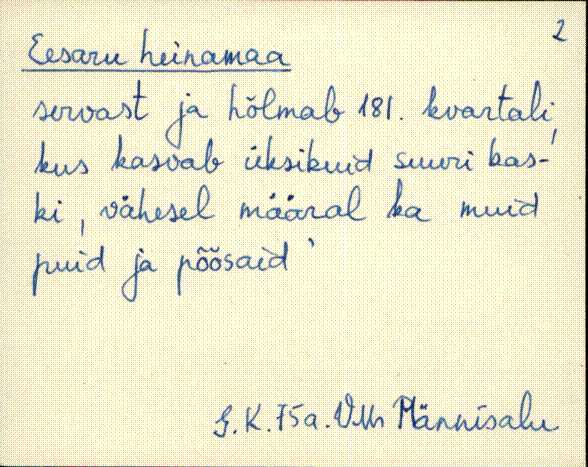 2
Eesaru heinamaa
servast ja hõlmab 181. kvartali,
kus kasvab üksikuid suuri kas-
ki, vähesel määral ka muid
puid ja põõsaid'
Männisalu